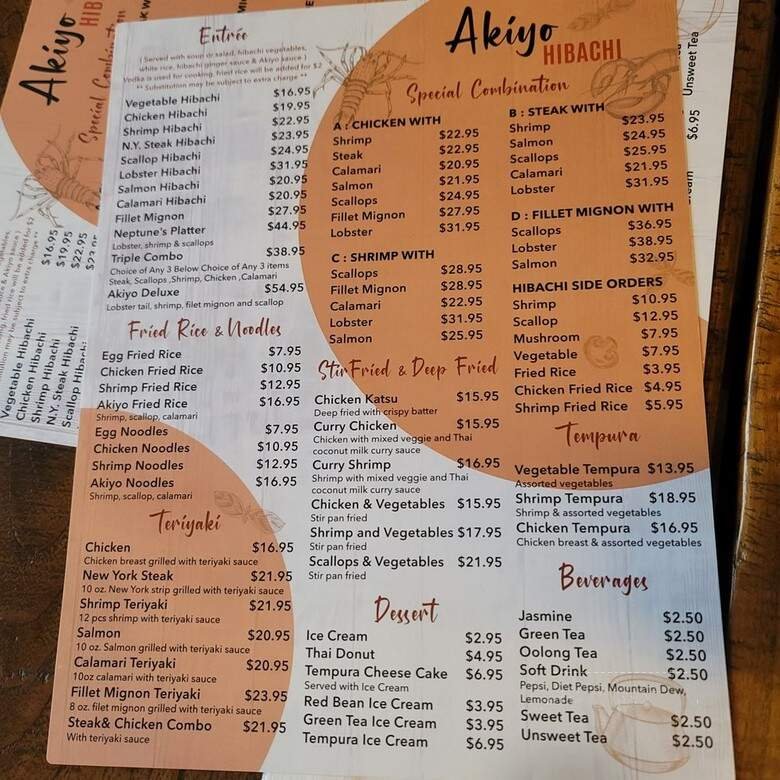 Akiyo
HIBACHI
Entrée
( Served with soup or salad, hibachi vegetables,
white rice, hibachi ginger sauce & Akiyo sauce )
Vodka is used for cooking, fried rice will be added for $2
** Substitution may be subject to extra charge **
Vegetable Hibachi $16.95
Chicken Hibachi $19.95
Shrimp Hibachi $22.95
N.Y. Steak Hibachi $23.95
Scallop Hibachi $24.95
Lobster Hibachi $31.95
Salmon Hibachi $20.95
Calamari Hibachi $20.95
Fillet Mignon $27.95
Neptune's Platter $44.95
Lobster, shrimp & scallops
Triple Combo $38.95
Choice of Any 3 Below Choice of Any 3 items
Steak, Scallops ,Shrimp, Chicken ,Calamari
Akiyo Deluxe $54.95
Lobster tail, shrimp, filet mignon and scallop
Fried Rice & Noodles
Egg Fried Rice $7.95
Chicken Fried Rice $10.95
Shrimp Fried Rice $12.95
Akiyo Fried Rice $16.95
Shrimp, scallop, calamari
Egg Noodles $7.95
Chicken Noodles $10.95
Shrimp Noodles $12.95
Akiyo Noodles $16.95
Shrimp, scallop, calamari
Teriyaki
Chicken $16.95
Chicken breast grilled with teriyaki sauce
New York Steak $21.95
10 oz. New York strip grilled with teriyaki sauce
Shrimp Teriyaki $21.95
12 pcs shrimp with teriyaki sauce
Salmon $20.95
10 oz. Salmon grilled with teriyaki sauce
Calamari Teriyaki $20.95
10oz calamari with teriyaki sauce
Fillet Mignon Teriyaki $23.95
8 oz. filet mignon grilled with teriyaki sauce
Steak& Chicken Combo $21.95
With teriyaki sauce
Special Combination
A : CHICKEN WITH
Shrimp $22.95
Steak $22.95
Calamari $20.95
Salmon $21.95
Scallops $24.95
Fillet Mignon $27.95
Lobster $31.95
C : SHRIMP WITH
Scallops $28.95
Fillet Mignon $28.95
Calamari $22.95
Lobster $31.95
Salmon $25.95
B : STEAK WITH
Shrimp $23.95
Salmon $24.95
Scallops $25.95
Calamari $21.95
Lobster $31.95
D : FILLET MIGNON WITH
Scallops $36.95
Lobster $38.95
Salmon $32.95
HIBACHI SIDE ORDERS
Shrimp $10.95
Scallop $12.95
Mushroom $7.95
Vegetable $7.95
Fried Rice $3.95
Chicken Fried Rice $4.95
Shrimp Fried Rice $5.95
Stir Fried & Deep Fried
Chicken Katsu $15.95
Deep fried with crispy batter
Curry Chicken $15.95
Chicken with mixed veggie and Thai
coconut milk curry sauce
Curry Shrimp $16.95
Shrimp with mixed veggie and Thai
coconut milk curry sauce
Chicken & Vegetables $15.95
Stir pan fried
Shrimp and Vegetables $17.95
Stir pan fried
Scallops & Vegetables $21.95
Stir pan fried
Tempura
Vegetable Tempura $13.95
Assorted vegetables
Shrimp Tempura $18.95
Shrimp & assorted vegetables
Chicken Tempura $16.95
Chicken breast & assorted vegetables
Dessert
Ice Cream $2.95
Thai Donut $4.95
Tempura Cheese Cake $6.95
Served with Ice Cream
Red Bean Ice Cream $3.95
Green Tea Ice Cream $3.95
Tempura Ice Cream $6.95
Beverages
Jasmine $2.50
Green Tea $2.50
Oolong Tea $2.50
Soft Drink $2.50
Pepsi, Diet Pepsi, Mountain Dew,
Lemonade
Sweet Tea $2.50
Unsweet Tea $2.50
Akiyo
HIB
Special Combination
$16.95
$19.95
$22.95
Vegetable Hibachi
Chicken Hibachi
Shrimp Hibachi
N.Y. Steak Hibachi
Scallop Hibachi
Unsweet Tea
$6.95